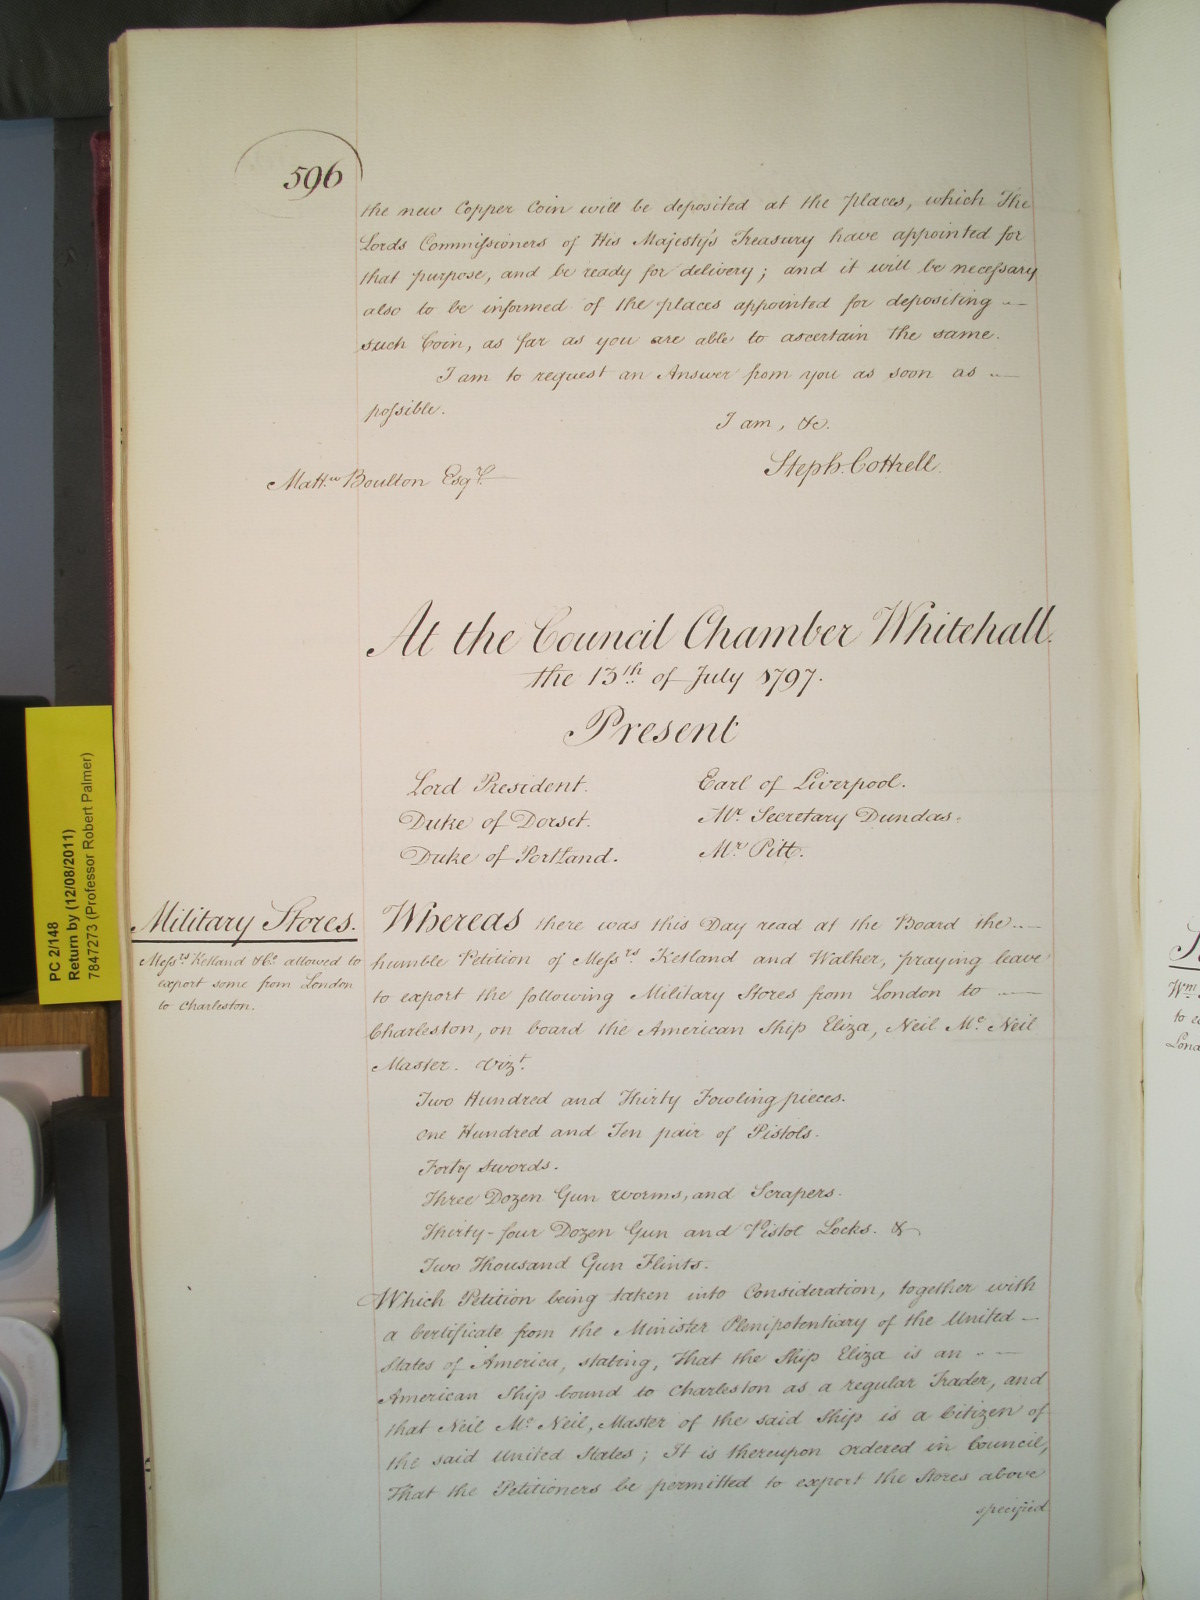 596
the new Copper Coin will be deposited at the places, which The
Lords Commissioners of His Majesty's Treasury have appointed for
that purpose, and be ready for delivery; and it will be necessary
also to be informed of the places appointed for depositing
such Coin, as far as you are able to ascertain the same.
I am to request an Answer from you as soon as
possible.
I am, &c.
Steph. Cottrell.
Mattw Boulton Esqr.
At the Council Chamber Whitehall.
the 13th of July 1797.
Present
Lord President. Earl of Liverpool.
Duke of Dorset. Mr. Secretary Dundas.
Duke of Portland. Mr. Pitt.
Military Stores.
Messrs. Ketland &Co. allowed to
export some from London
to Charleston.
Whereas there was this Day read at the Board the
humble Petition of Messrs. Ketland and Walker, praying leave
to export the following Military Stores from London to
Charleston, on board the American Ship Eliza, Neil Mc. Neil
Master. Vizt.
Two Hundred and Thirty Fowling pieces.
One Hundred and Ten pair of Pistols.
Forty Swords.
Three Dozen Gun worms, and Scrapers.
Thirty-four Dozen Gun and Pistol Locks. &
Two Thousand Gun Flints.
Which Petition being taken into Consideration, together with
a Certificate from the Minister Plenipotentiary of the United
States of America, stating, That the Ship Eliza is an
American Ship bound to Charleston as a regular Trader, and
that Neil Mc. Neil, Master of the said Ship is a Citizen of
the said United States; It is thereupon ordered in Council,
That the Petitioners be permitted to export the Stores above
specified
PC 2/148
Return by (12/08/2011)
7847273 (Professor Robert Palmer)
Wm
to